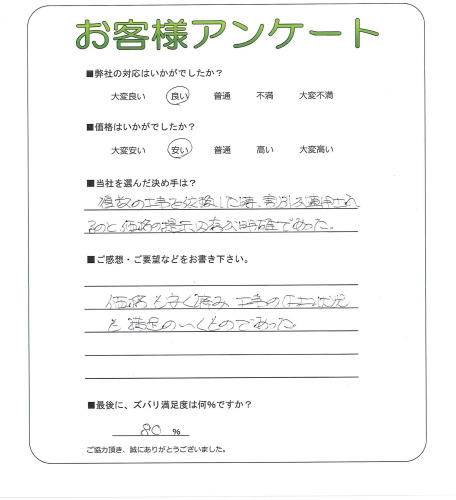 お客様アンケート
■弊社の対応はいかがでしたか？
大変良い 良い 普通 不満 大変不満
■価格はいかがでしたか？
大変安い 安い 普通 高い 大変高い
■当社を選んだ決め手は？
複数の工事を依頼した時、割引が適用され
るのと価格の提示が明確であった。
■ご感想・ご要望などをお書き下さい。
価格も安く済み 工事の仕上状況
も満足のいくものであった。
■最後に、ズバリ満足度は何%ですか？
80 %
ご協力頂き、誠にありがとうございました。